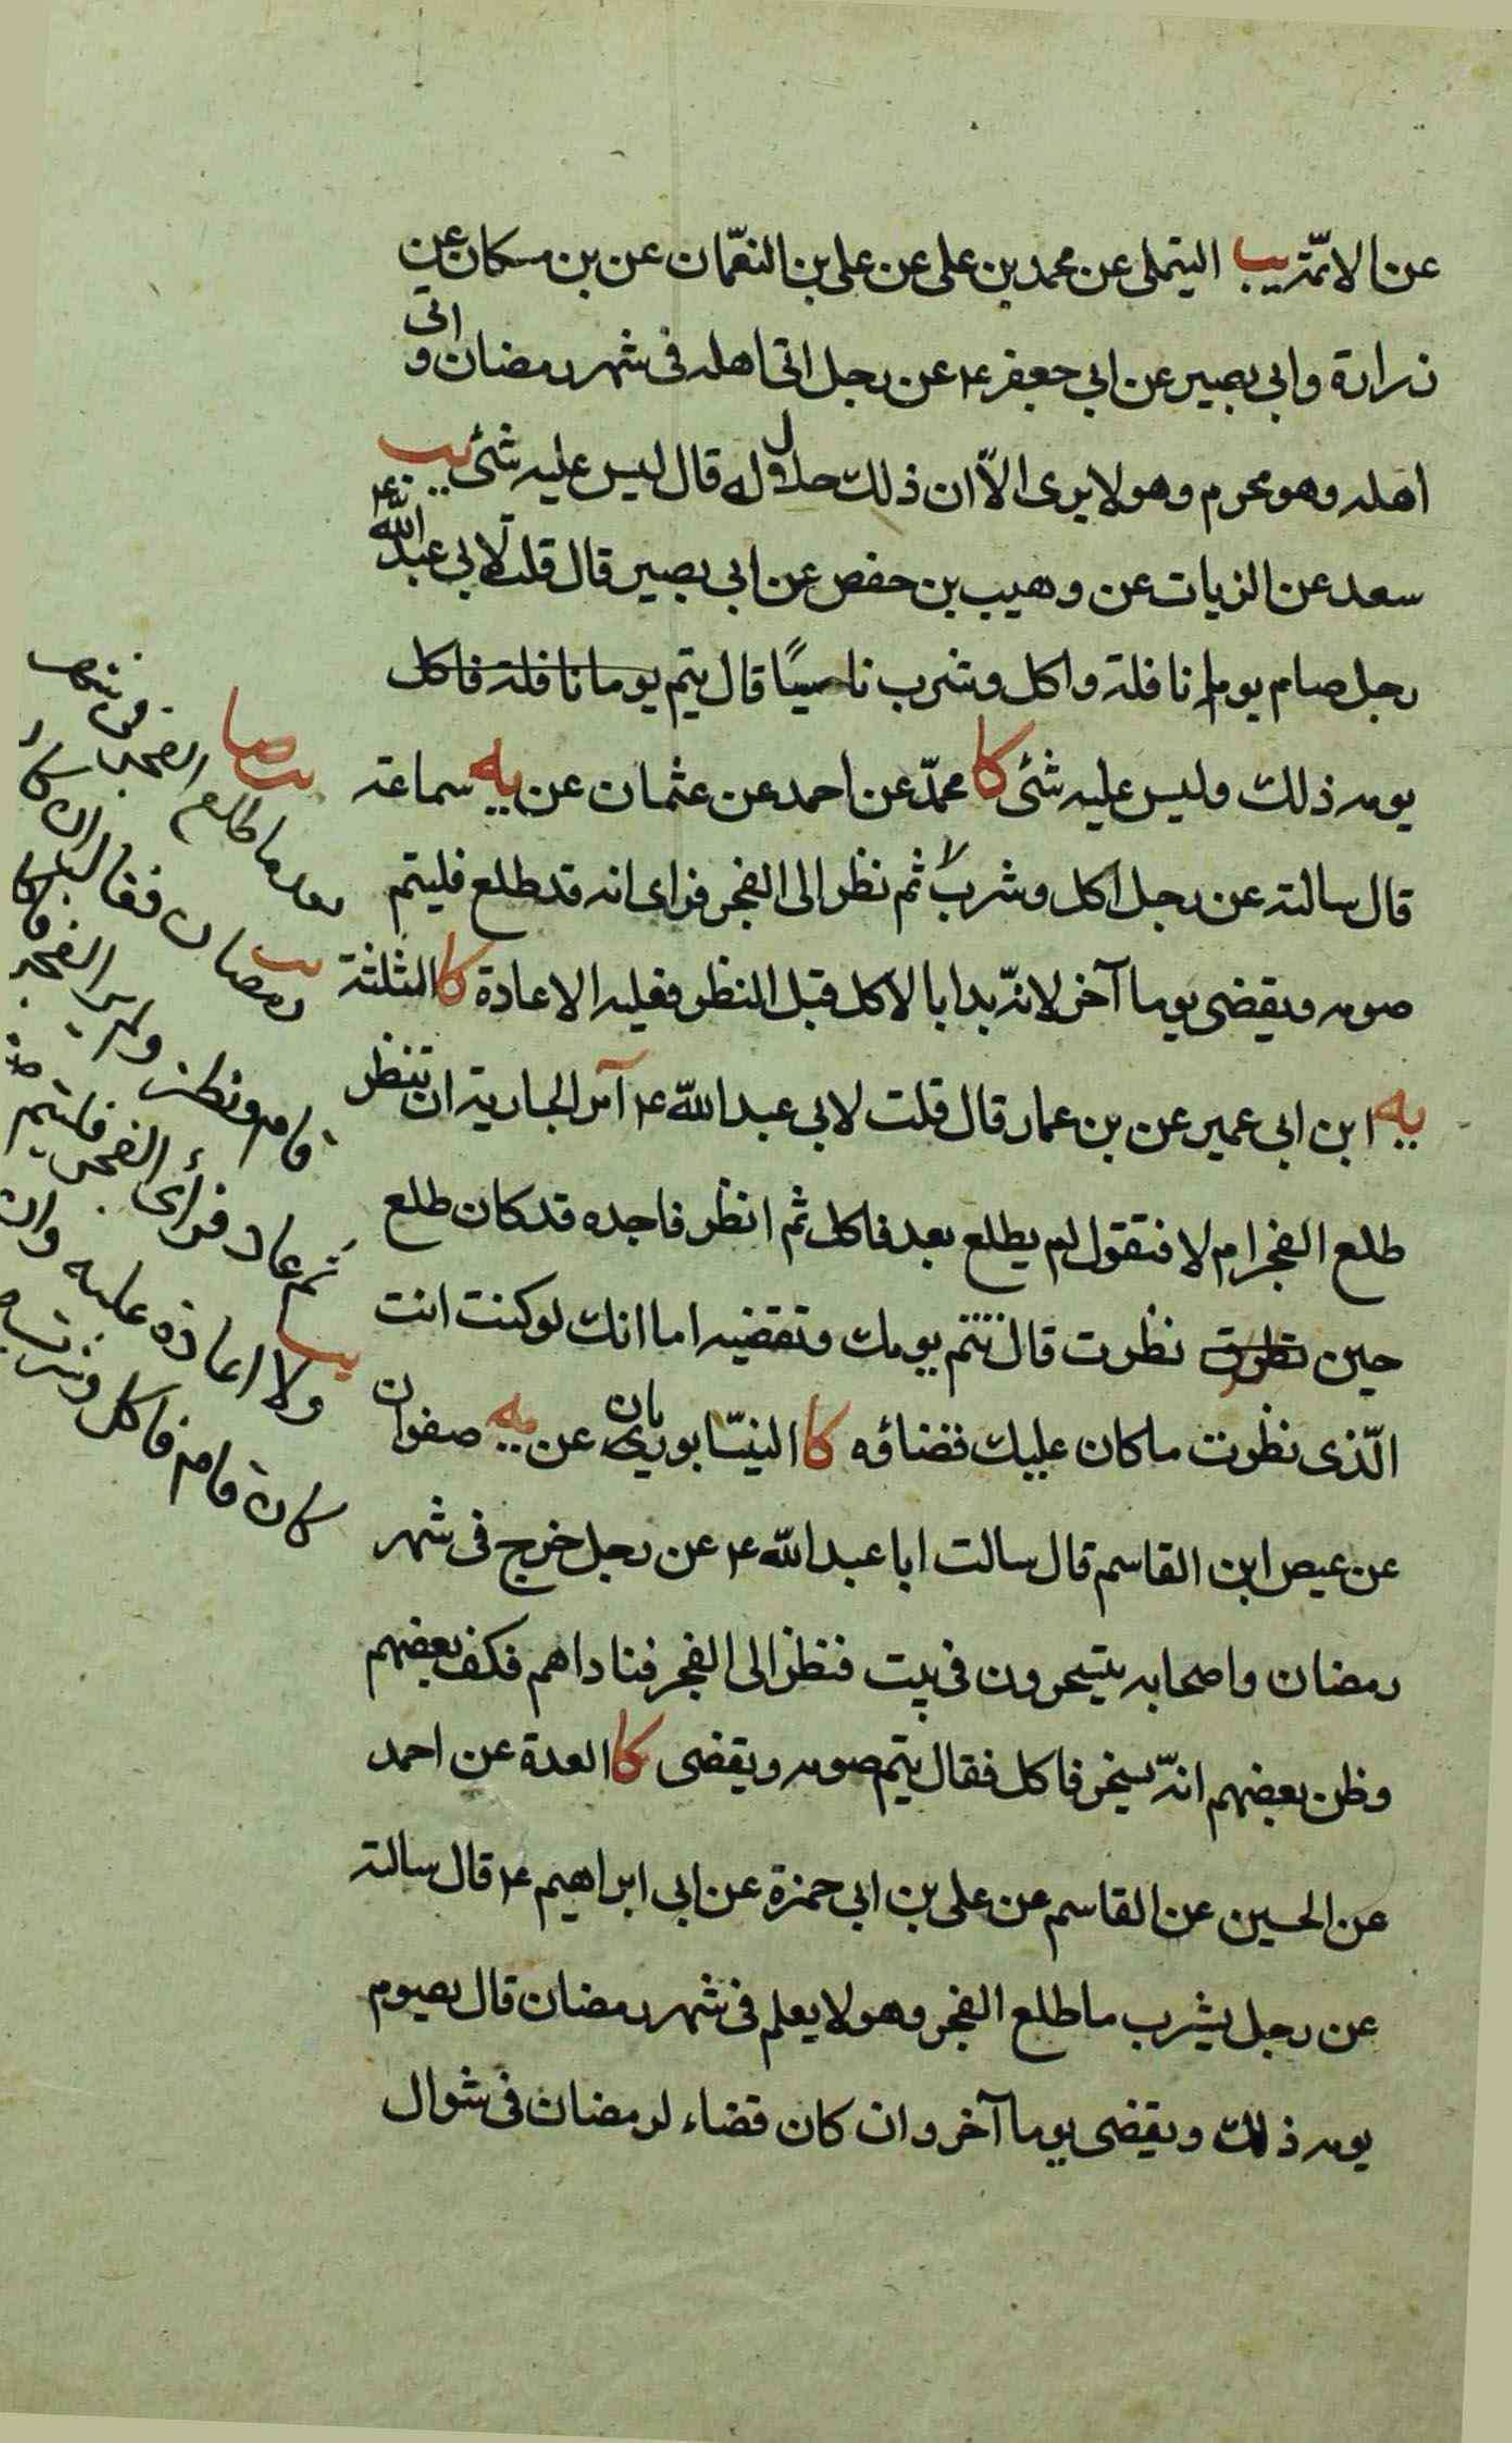 عن الائمة يب التيملى عن محمد بن على عن على بن النعمّان عن بن مسكان عن
زرارة وابي بصير عن ابي جعفر ع عن رجل اتى اهله فى شهر رمضان و اتى
اهله وهو محرم وهو لا يرى الاّ ان ذلك حلال له قال ليس عليه شئ يب
سعد عن الزيات عن وهيب بن حفص عن ابي بصير قال قلت لابي عبد الله ع
رجل صام يوما نافلة واكل وشرب ناسيًا قال يتم يوما نافلة فاكل
يومه ذلك وليس عليه شئ كا محمدّ عن احمد عن عثمان عن يه سماعة
قال سالته عن رجل اكل وشرب ثم نظر الى الفجر فراى انه قد طلع فليتم
صومه ويقضى يوما آخر لانهّ بدا بالاكل قبل النظر فعليه الاعادة كا الثلثة
يه ابن ابى عمير عن بن عمار قال قلت لابي عبد الله ع آمر الجارية ان تنظر
طلع الفجر ام لا فتقول لم يطلع بعد فاكل ثم انظر فاجده قد كان طلع
حين نظرت نظرت قال تتم يومك وتقضيه اما انك لو كنت انت
الّذى نظرت ما كان عليك قضاؤه كا النيسّابوريان عن يه صفوان
عن عيص ابن القاسم قال سالت ابا عبد الله ع عن رجل خرج فى شهر
رمضان واصحابه يتسحرون فى بيت فنظر الى الفجر فناداهم فكف بعضهم
وظن بعضهم انهّ يسخر فاكل فقال يتم صومه ويقضى كا العدة عن احمد
عن الحسين عن القاسم عن على بن ابي حمزة عن ابي ابراهيم ع قال سالته
عن رجل يشرب ما طلع الفجر وهو لا يعلم فى شهر رمضان قال يصوم
يومه ذلك ويقضى يوما آخر وان كان قضاء لرمضان فى شوال
بعد ما طلع الفجر فى شهر
رمضان فقال ان كان
قام فنظر ولم ير الفجر فاكل
ثم عاد فرأى الفجر فليتم صومه
ولا اعادة عليه وان
كان قام فاكل وشرب